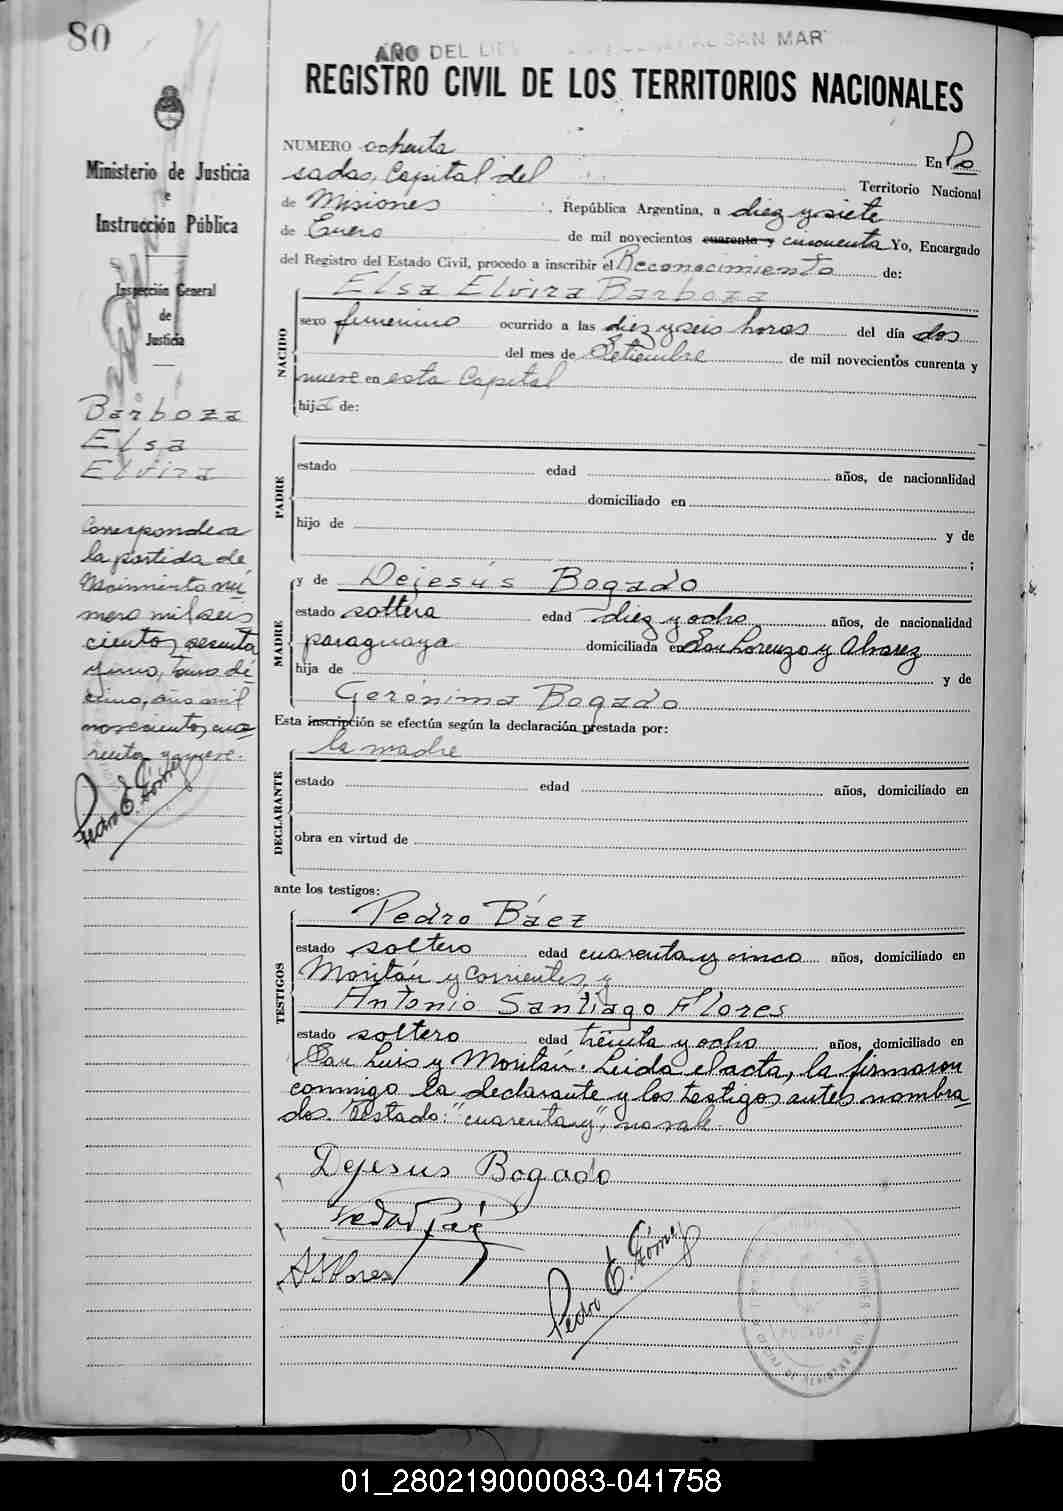 80
AÑO DEL LIB GENERAL SAN MAR
REGISTRO CIVIL DE LOS TERRITORIOS NACIONALES
Ministerio de Justicia
e
Instrucción Pública
Inspección General
de
Justicia
Barboza
Elsa
Elvira
Corresponde a
la partida de
Nacimiento nú-
mero mil seis
cientos sesenta
y uno, tomo dé-
cimo, año mil
novecientos cua-
renta y nueve.
Pedro E. Gómez
NUMERO ochenta En Po
sadas, Capital del Territorio Nacional
de Misiones, República Argentina, a diez y siete
de Enero de mil novecientos cuarenta y cincuenta Yo, Encargado
del Registro del Estado Civil, procedo a inscribir el Reconocimiento de:
NACIDO
Elsa Elvira Barboza
sexo femenino ocurrido a las diez y seis horas del día dos
del mes de Setiembre de mil novecientos cuarenta y
nueve en esta Capital
hija de:
PADRE
estado edad años, de nacionalidad
domiciliado en
hijo de y de
;
MADRE
y de Dejesús Bogado
estado soltera edad diez y ocho años, de nacionalidad
paraguaya domiciliada en San Lorenzo y Alvarez
hija de y de
Gerónima Bogado
Esta inscripción se efectúa según la declaración prestada por:
DECLARANTE
la madre
estado edad años, domiciliado en
obra en virtud de
ante los testigos:
TESTIGOS
Pedro Báez
estado soltero edad cuarenta y cinco años, domiciliado en
Moritán y Corrientes, y
Antonio Santiago Flores
estado soltero edad treinta y ocho años, domiciliado en
San Luis y Moritán. Leida el acta, la firmaron
conmigo la declarante y los testigos antes nombra-
dos. Testado: "cuarenta y", no vale.
Dejesus Bogado
Pedro Báez
A S Flores
Pedro E. Gómez
POSADAS
01_280219000083-041758